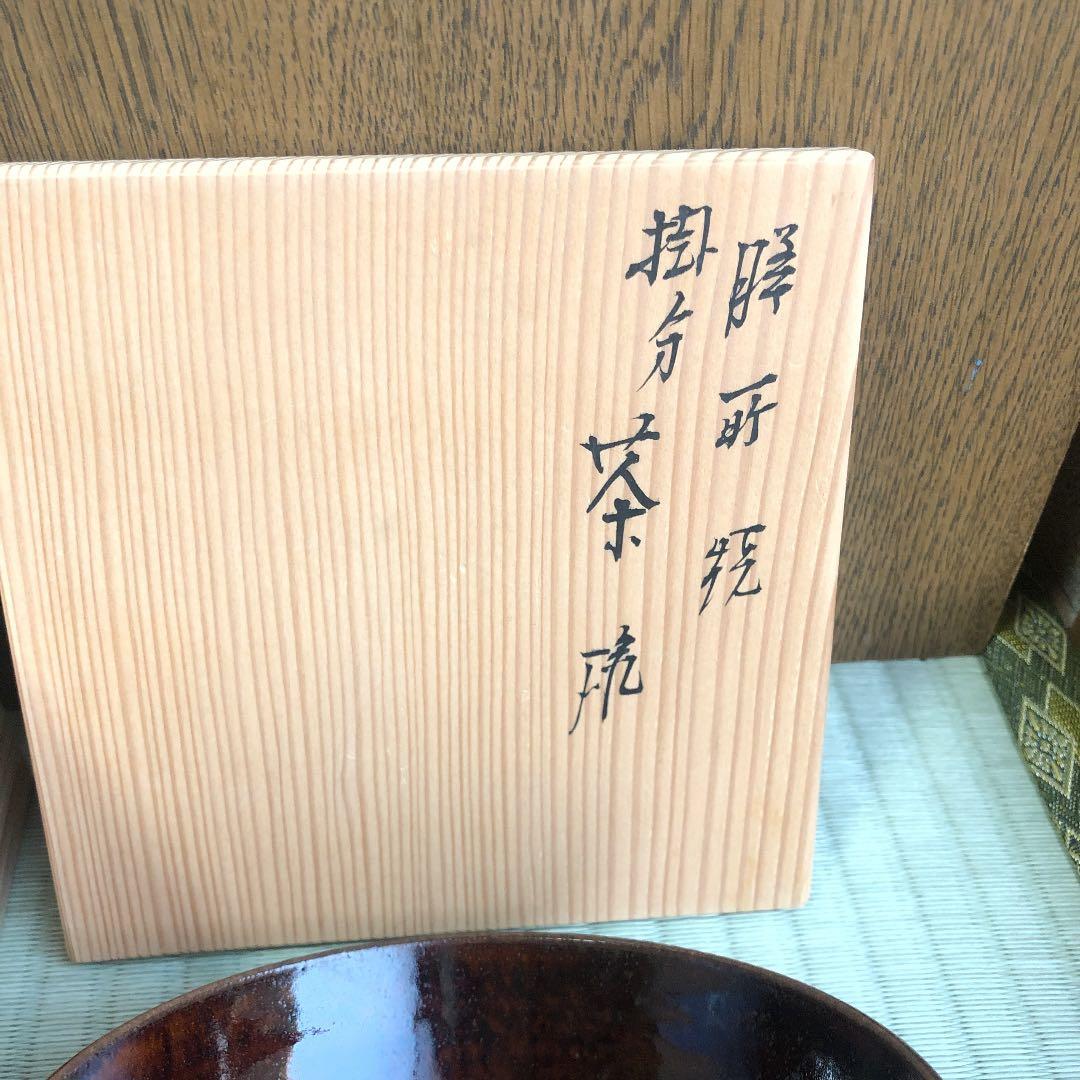 膳所焼
掛分茶碗